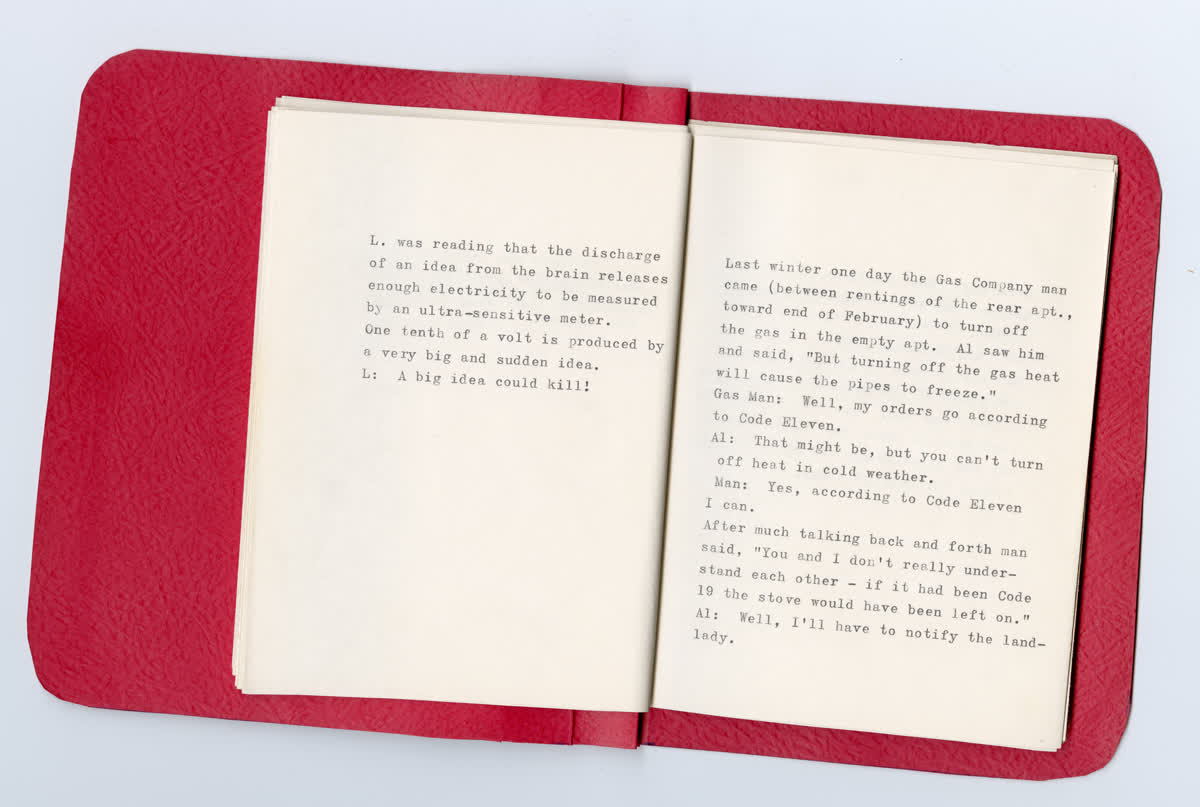 L. was reading that the discharge
of an idea from the brain releases
enough electricity to be measured
by an ultra-sensitive meter.
One tenth of a volt is produced by
a very big and sudden idea.
L:  A big idea could kill!
Last winter one day the Gas Company man
came (between rentings of the rear apt.,
toward end of February) to turn off
the gas in the empty apt.  Al saw him
and said, "But turning off the gas heat
will cause the pipes to freeze."
Gas Man:  Well, my orders go according
to Code Eleven.
Al:  That might be, but you can't turn
off heat in cold weather.
Man:  Yes, according to Code Eleven
I can.
After much talking back and forth man
said, "You and I don't really under-
stand each other - if it had been Code
19 the stove would have been left on."
Al:  Well, I'll have to notify the land-
lady.